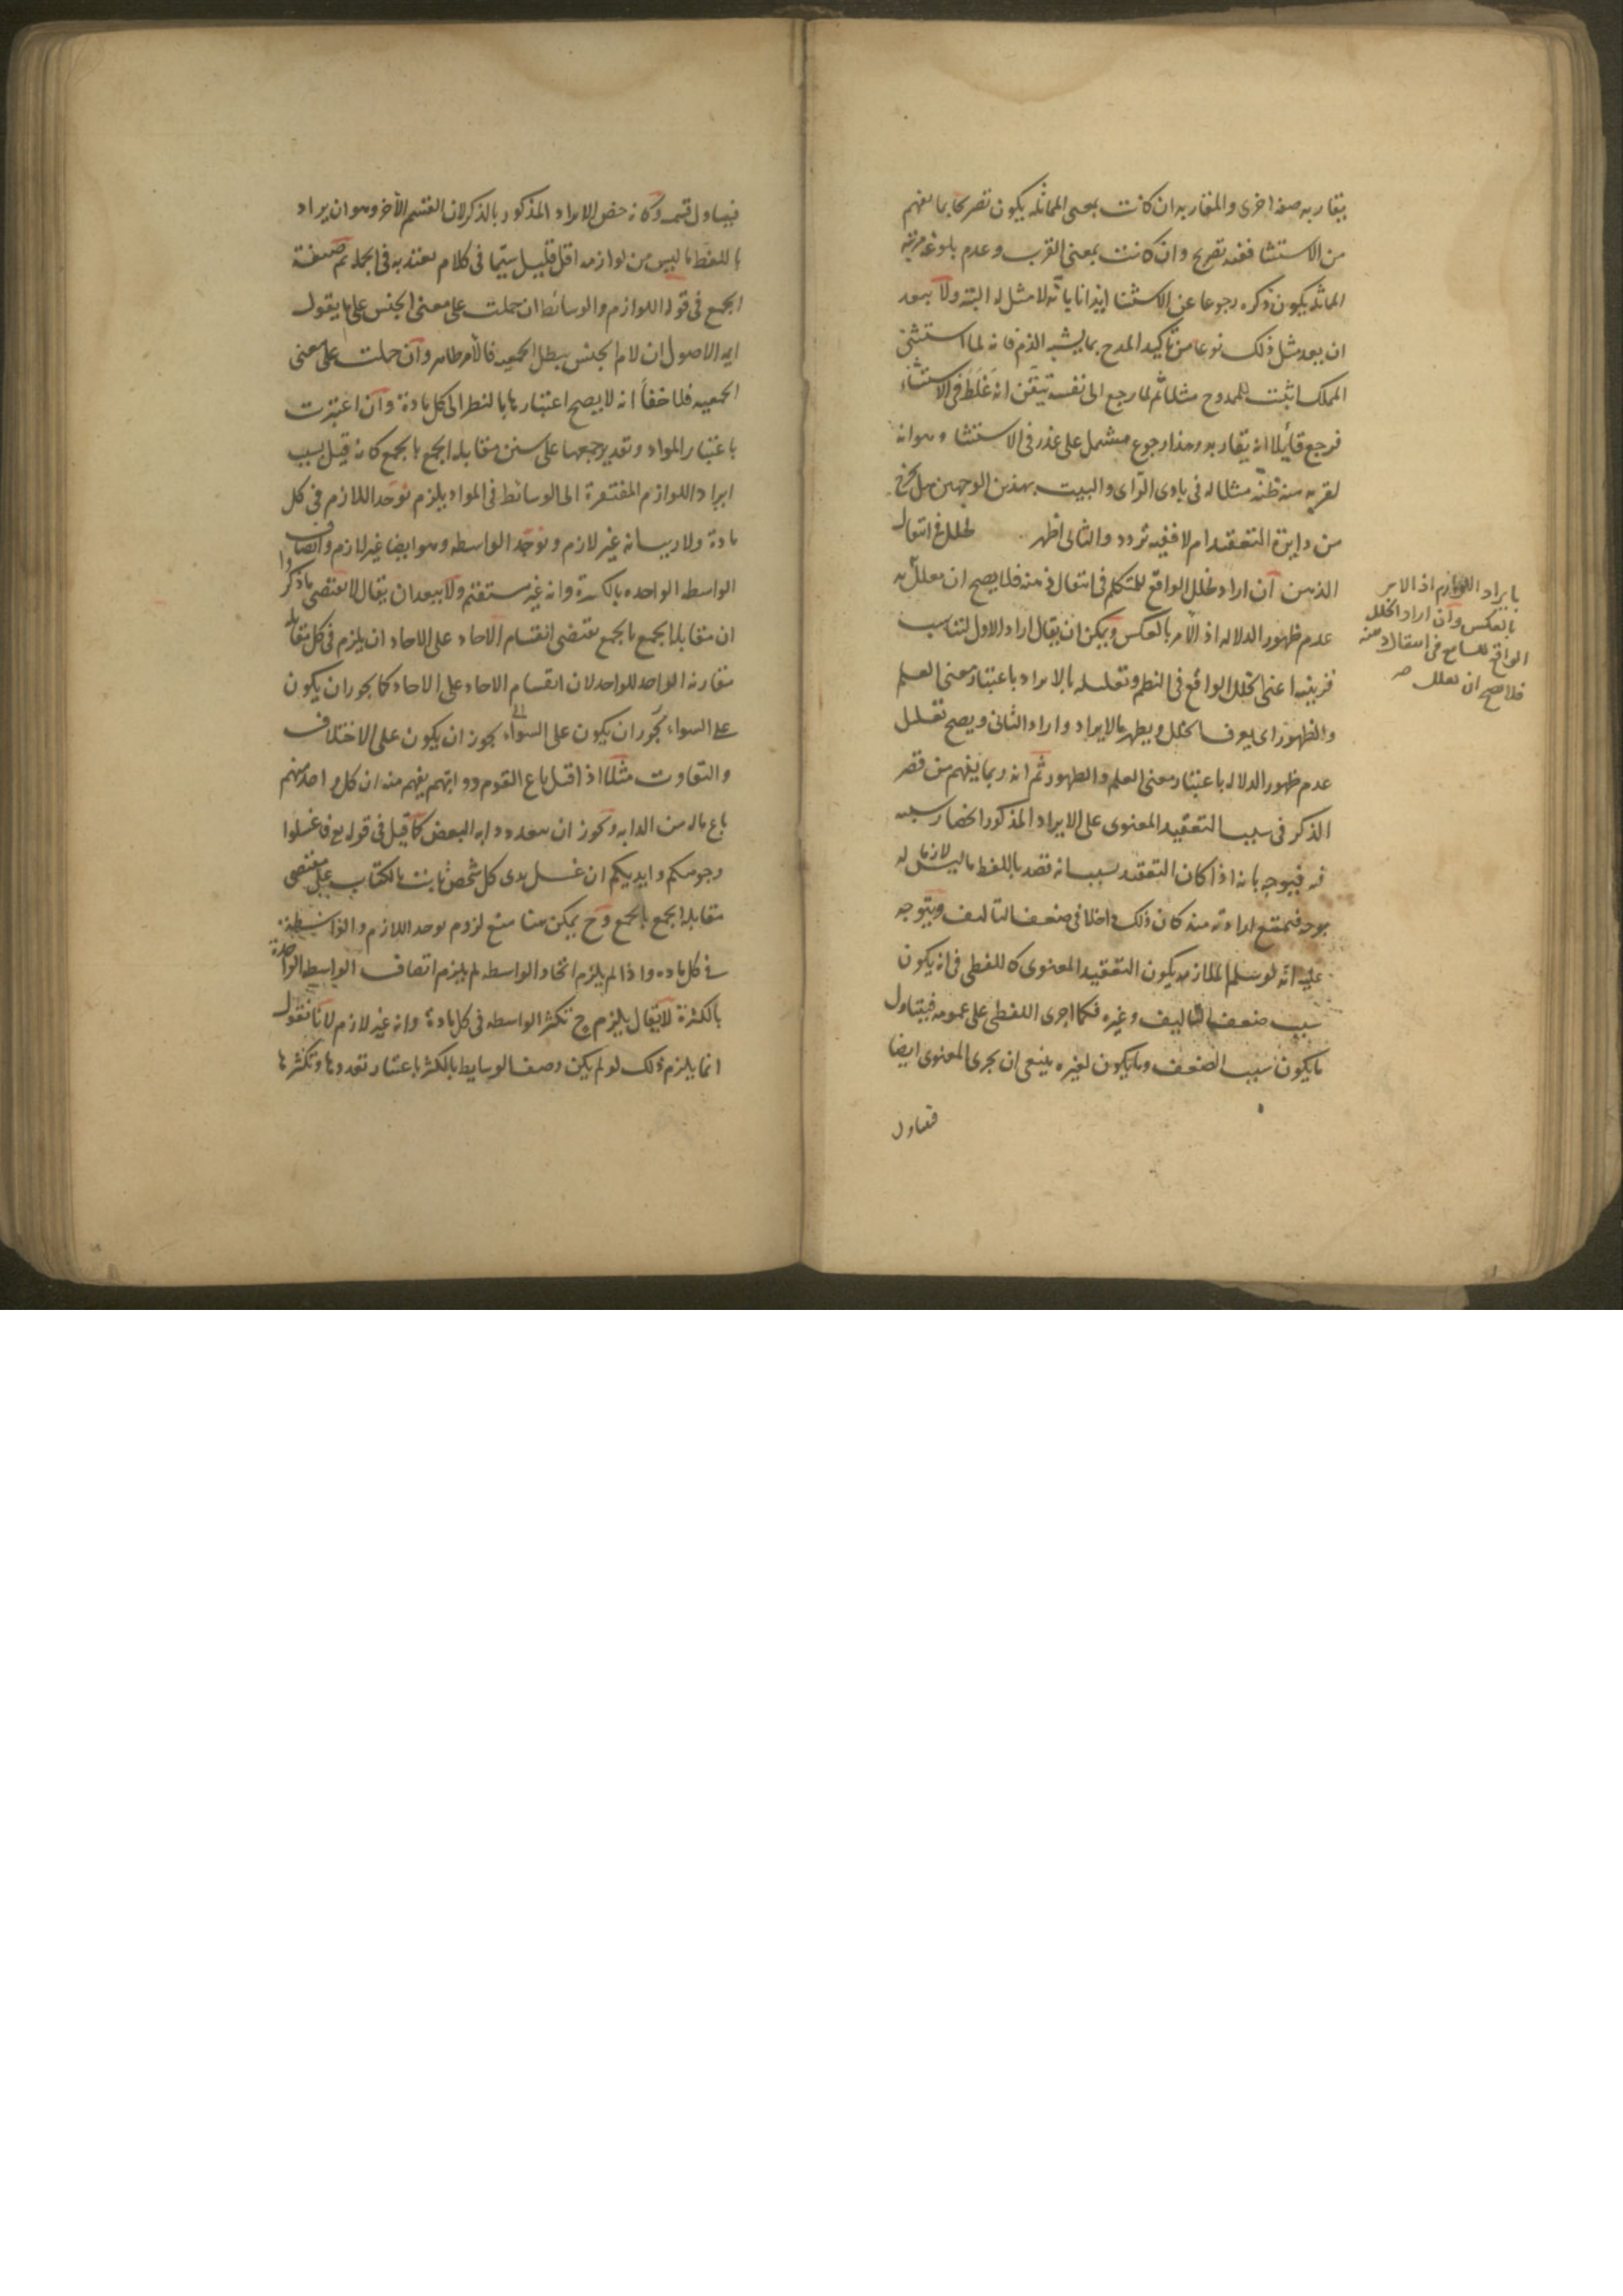 يقاربه صفة اخرى والمقاربة ان كانت بمعنى المماثلة يكون تصريحا بما يفهم
من الاستثنا ففيه تصريح وان كانت بمعنى القرب وعدم بلوغه مرتبة
المماثلة يكون ذكره رجوعا عن الاستثنا ايذانا بانه لا مثل له البتة ولا يبعد
ان يعد مثل ذلك نوعا من تاكيد المدح بما يشبه الذم فانه لما استثنى
المملك اثبت للممدوح مثلا ثم لما رجع الى نفسه تيقن انه غلط في الاستثناء
فرجع قائلا انه يقاربه وهذا رجوع مشتمل على عذر في الاستثنا وهو انه
لقربه منه ظنه مثلا له في بادى الراى والبيت بهذين الوجهين هل يخرج
من دايرة التعقيد ام لا ففيه تردد والثاني اظهر لخلل في انتقال
الذهن ان اراد الخلل الواقع للمتكلم في انتقال ذهنه فلا يصح ان يعلل به
عدم ظهور الدلالة اذ الامر بالعكس ويمكن ان يقال اراد الاول لتناسب
قرينه اعنى الخلل الواقع في النظم وتعليله بالايراد باعتبار معنى العلم
والظهور اى يعرف الخلل ويظهر بالايراد واراد الثاني ويصح تعليل
عدم ظهور الدلالة باعتبار معنى العلم والظهور ثم انه ربما يفهم من قصر
الذكر في سبب التعقيد المعنوى على الايراد المذكور انحصار سببه
فيه فيوجه بانه اذا كان التعقيد بسبب انه قصد باللفظ ما ليس لازما له
بوجه فيمتنع ارادته منه كان ذلك داخلا في ضعف التاليف ويتوجه
عليه انه لو سلم الملازمة يكون التعقيد المعنوى كاللفظى في انه يكون
سبب ضعف التاليف وغيره فكما اجرى اللفظى على عمومه فيتناول
ما يكون سبب الضعف وما يكون لغيره ينبغى ان يجرى المعنوى ايضا
فيتناول
بايراد اللوازم اذ الامر
بالعكس وان اراد الخلل
الواقع للسامع في انتقال ذهنه
فلا يصح ان يعلل صح
فيتناول قسميه وكانه خص الايراد المذكور بالذكر لان القسم الاخر وهو ان يراد
باللفظ ما ليس من لوازمه اقل قليل سيما في كلام يعتد به في الجملة ثم صيغة
الجمع في قوله اللوازم والوسائط ان حملت على معنى الجنس على ما يقول
ايمة الاصول ان لام الجنس يبطل الجمعيه فالامر ظاهر وان حملت على معنى
الجمعيه فلا خفأ انه لا يصح اعتبارها بالنظر الى كل مادة وان اعتبرت
باعتبار المواد وتقدير جمعها على سنن مقابلة الجمع بالجمع كانه قيل بسبب
ايراد اللوازم المفتقرة الى الوسائط في المواد يلزم توحد اللازم في كل
مادة ولا ريب انه غير لازم وتوحد الواسطه وهو ايضا غير لازم واتصاف
الواسطه الواحده بالكثرة وانه غير مستقيم ولا يبعد ان يقال لا يقتضى ما ذكروا
ان مقابلة الجمع بالجمع يقتضى انقسام الاحاد على الاحاد ان يلزم في كل مقابلة
مقارنة الواحد للواحد لان انقسام الاحاد على الاحاد كما يجوز ان يكون
على السواء يجوز ان يكون على الاختلاف
والتفاوت مثلا اذا قيل باع القوم دوابهم يفهم منه ان كل واحد منهم
باع ماله من الدابه ويجوز ان يتعدد دابة البعض كما قيل في قوله تع فاغسلوا
وجوهكم وايديكم ان غسل يدى كل شخص ثابت بالكتاب على مقتضى
مقابلة الجمع بالجمع وح يمكن هنا منع لزوم توحد اللازم والواسطة
في كل ماده واذا لم يلزم اتحاد الواسطه لم يلزم اتصاف الواسطه الواحدة
بالكثرة لا يقال يلزم ح تكثر الواسطه في كل مادة وانه غير لازم لانا نقول
انما يلزم ذلك لو لم يكن وصف الوسايط بالكثرة باعتبار تعددها وتكثرها